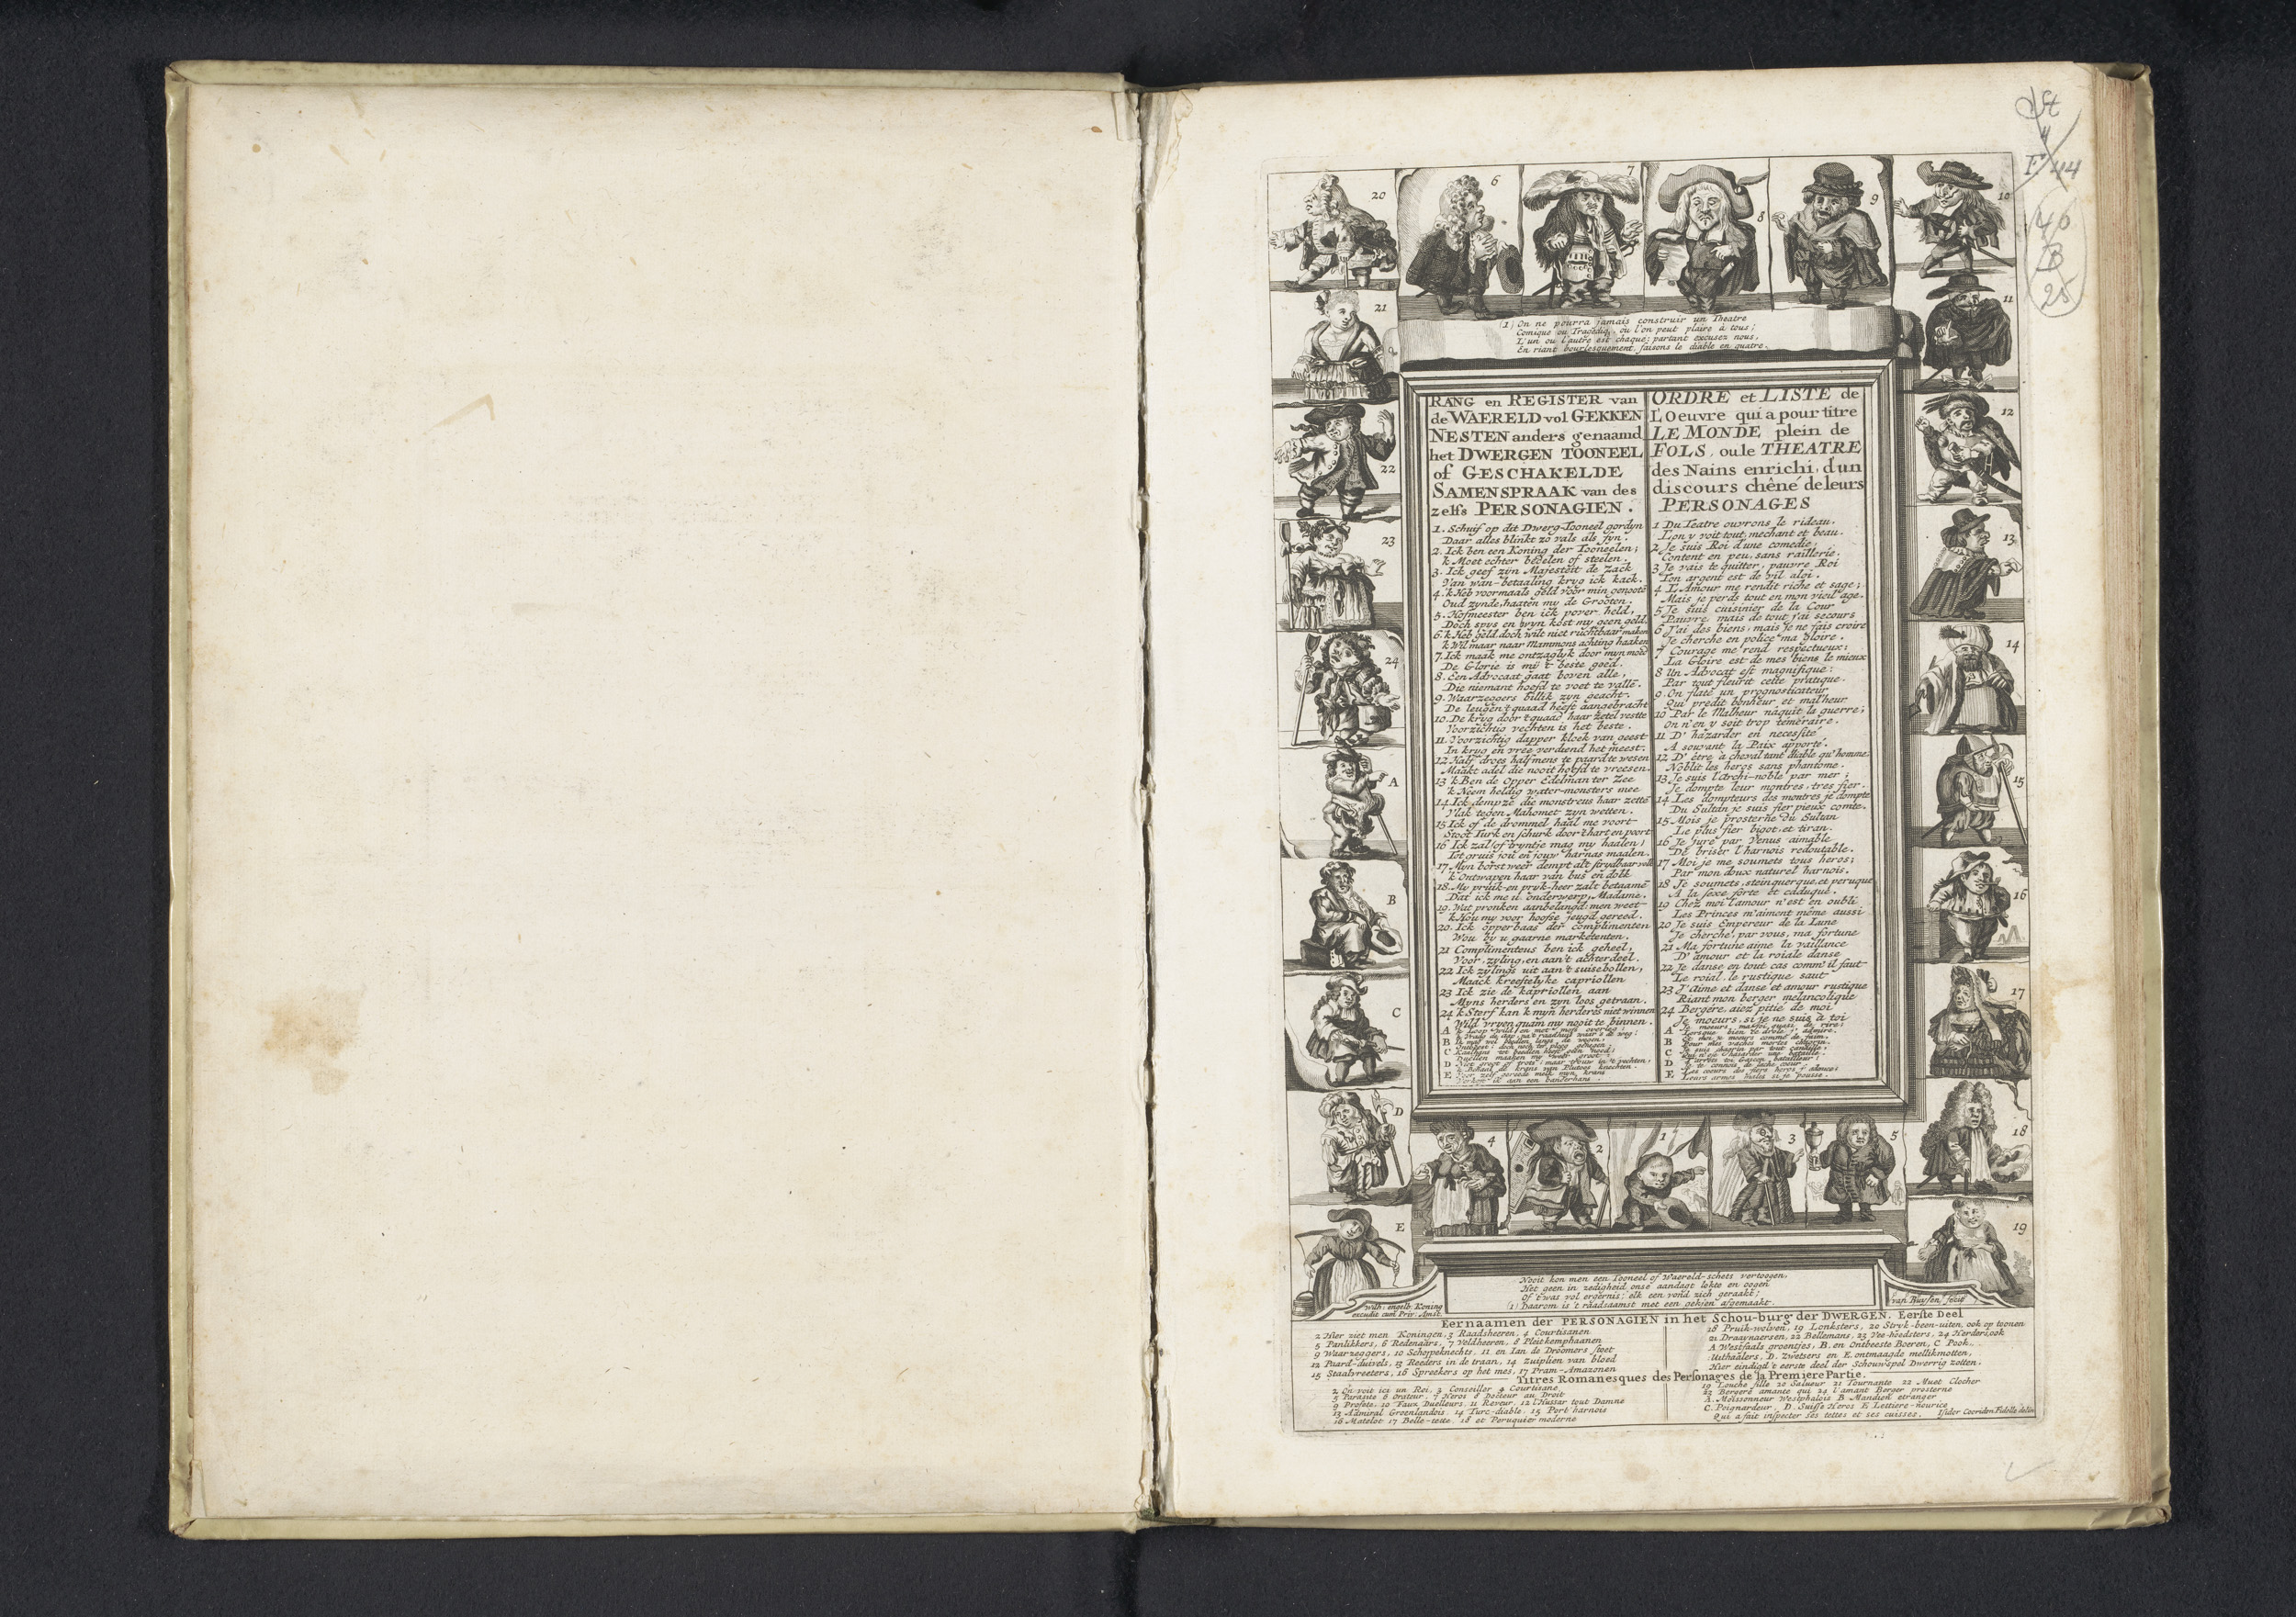 St
4
F 44
40
B
25
20
6
7
8
9
10
21
11
(1) On ne pourra jamais construir un Theatre
Comique ou Tragediq, ou l'on peut plaire à tous;
L'un ou l'autre est chaque; partant excusez nous,
En riant bourlesquement faisons le diable en quatre.
RANG en REGISTER van
de WAERELD vol GEKKEN
NESTEN anders genaamd
het DWERGEN TOONEEL
of GESCHAKELDE
SAMENSPRAAK van des
zelfs PERSONAGIEN.
1. Schuif op dit Dwerg-Tooneel gordyn
Daar alles blinkt zo vals als fyn.
2. Ick ben een Koning der Tooneelen;
k Moet echter bedelen of steelen.
3. Ick geef zyn Majesteit de zack
Van wan-betaaling kryg ick kack.
4. k Heb voormaals geld voor min genoote
Oud zynde, haaten my de Grooten.
5. Hofmeester ben ick pover held,
Doch spys en wyn kost my geen geld.
6. k Heb geld doch wilt niet ruchtbaar maken
k Wil maar naar Mammons achting haaken
7. Ick maak me ontzaglyk door myn moed
De Glorie is mij 't beste goed.
8. Een Advocaat gaat boven alle,
Die niemant hoefd te voet te valle.
9. Waarzeggers billik zyn geacht.
De leugen 't quaad heeft aangebracht
10. De kryg door 't quaad haar zetel vestte
Voorzichtig vechten is het beste.
11. Voorzichtig dapper kloek van geest
In kryg en vree verdiend het meest.
12 Half droes half mens te paard te wesen
Maakt adel die nooit hoefd te vreesen.
13 'k Ben de Opper Edelman ter Zee
'k Neem heldig water-monsters mee
14. Ick dempze die monstreus haar zette
Vlak tegen Mahomet zyn wetten.
15 Ick of de drommel haal me voort
Stoot Turk en schurk door 't hart en poort
16 Ick zal (of tryntje mag my haalen)
Tot gruis jou en jouw harnas maalen.
17. Myn borst weer dempt alt strydbaar volk
k Ontwapen haar van bus en dolk
18. My pruik-en pryk-heer zalt betaame
Dat ick me u onderwerp, Madame.
19. Wat pronken aanbelangd: men weet
k Hou my voor hoofse jeugd gereed.
20. Ick opperbaas der complimenten
Wou by u gaarne marketenten.
21 Complimenteus ben ick geheel,
Voor, zyling, en aan't achterdeel.
22 Ick zylings uit aan't suisebollen,
Maack kreeftelyke capriollen
23 Ick zie de kapriollen aan
Myns herders en zyn loos getraan.
24 k Sterf kan k myn herderes niet winnen
Wild vryen quam my nooit te binnen.
ORDRE et LISTE de
L'Oeuvre qui a pour titre
LE MONDE plein de
FOLS, ou le THEATRE
des Nains enrichi, d'un
discours chêné de leurs
PERSONAGES
1 Du Teatre ouvrons le rideau.
L'on y voit tout, mechant et beau.
2 Je suis Roi d'une comedie,
Content en peu, sans raillerie.
3 Je vais te quitter, pauvre Roi
Ton argent est de vil aloi.
4 L'Amour me rendit riche et sage;
Mais je perds tout en mon vieil age.
5 Je suis cuisinier de la Cour
Pauvre, mais de tout j'ai secours
6 J'ai des biens, mais je ne fais croire
Je cherche en police ma gloire.
7 Courage me rend respectueux;
La Gloire est de mes biens le mieux
8 Un Advocat est magnifique:
Par tout fleurit cette pratique.
9. On flate un prognosticateur
Qui predit bonheur et malheur
10 Par le Malheur naquit la guerre;
On n'en y soit trop témeraire.
11 D' hazarder en necessité
A souvant la Paix apporté.
12 D' être à cheval tant diable qu'homme,
Noblit les heros sans phantome.
13 Je suis l'Archi-noble par mer;
Je dompte leur montres, tres fier.
14 Les dompteurs des montres je dompte
Du Sultan je suis fier pieux comte.
15 Mois je prosterne du Sultan
Le plus fier bigot, et tiran.
16 Je jure par Venus aimable
De briser l'harnois redoutable.
17 Moi je me soumets tous heros;
Par mon doux naturel harnois.
18 Je soumets, steinquerque, et peruque
A la sexe forte et caduque.
19 Chez moi l'amour n'est en oubli
Les Princes m'aimont même aussi
20 Je suis Empereur de la Lune
Je cherche, par vous, ma fortune
21 Ma fortune aime la vaillance
D' amour et la roiale danse
22 Je danse en tout cas comm' il faut
Le roial, le rustique saut
23 J'Aime et danse et amour rustique
Riant mon berger melancolique
24 Bergere, aiez pitié de moi
Je moeurs, si je ne suis à toi
12
22
23
13
24
14
A
15
B
16
C
17
D
18
E
19
4
2
1
3
5
Nooit kon men een Tooneel of Waereld-schets vertoogen,
Het geen in zedigheid onse aandagt lokte en oogen
Of 't was vol ergernis; elk een vond zich geraakt;
(1) Daarom is 't raadsaamst met een gekjen afgemaakt.
Wilh: engelb. Koning
excudit cum Priv: Amst
van Buysen fecit
Eernaamen der PERSONAGIEN in het Schou-burg der DWERGEN. Eerste Deel
2 Hier ziet men Koningen, 3 Raadsheeren, 4 Courtisanen
5 Panlikkers, 6 Redenaars, 7 Veldheeren, 8 Pleitkemphaanen
9 Waarzeggers, 10 Schopeknechts, 11 en Ian de Droomers steet
12 Paard-duivels, 13 Reeders in de traan, 14 zuiplien van bloed
15 Staalvreeters, 16 Spreekers op het mes, 17 Pram-Amazonen
18 Pruik-wolven, 19 Lonksters, 20 Stryk-been-uiten, ook op toonen
21 Draaynaersen, 22 Bellemans, 23 Vee-hoedsters, 24 Herders, ook
A Westfaals groentjes, B. en Ontbeeste Boeren, C Pook-
Uithaalers, D. Zwetsers en E. ontmaagde mellikmotten,
Hier eindigd 't eerste deel der Schouwspel Dwerrig zotten.
Titres Romanesques des Personages de la Premiere Partie.
2 On voit ici un Roi, 3 Conseiller 4 Courtisane
5 Parasite 6 Orateur, 7 Heros 8 Docteur au Droit
9 Profete, 10 Faux Duelleurs, 11 Reveur, 12 l'Hussar tout Damne
13 Admiral Groenlandois, 14 Turc-diable, 15 Port harnois
16 Matelot 17 Belle-tette, 18 et Peruquier moderne
19 Louche fille 20 Salueur 21 Tournante 22 Muet Clocher
23 Bergere amante qui 24 l'amant Berger prosterne
A. Moissonneur Westphalois B Mandien etranger
C. Poignardeur, D. Suisse Heros E Lettiere-nourice
Qui a fait inspecter ses tettes et ses cuisses.